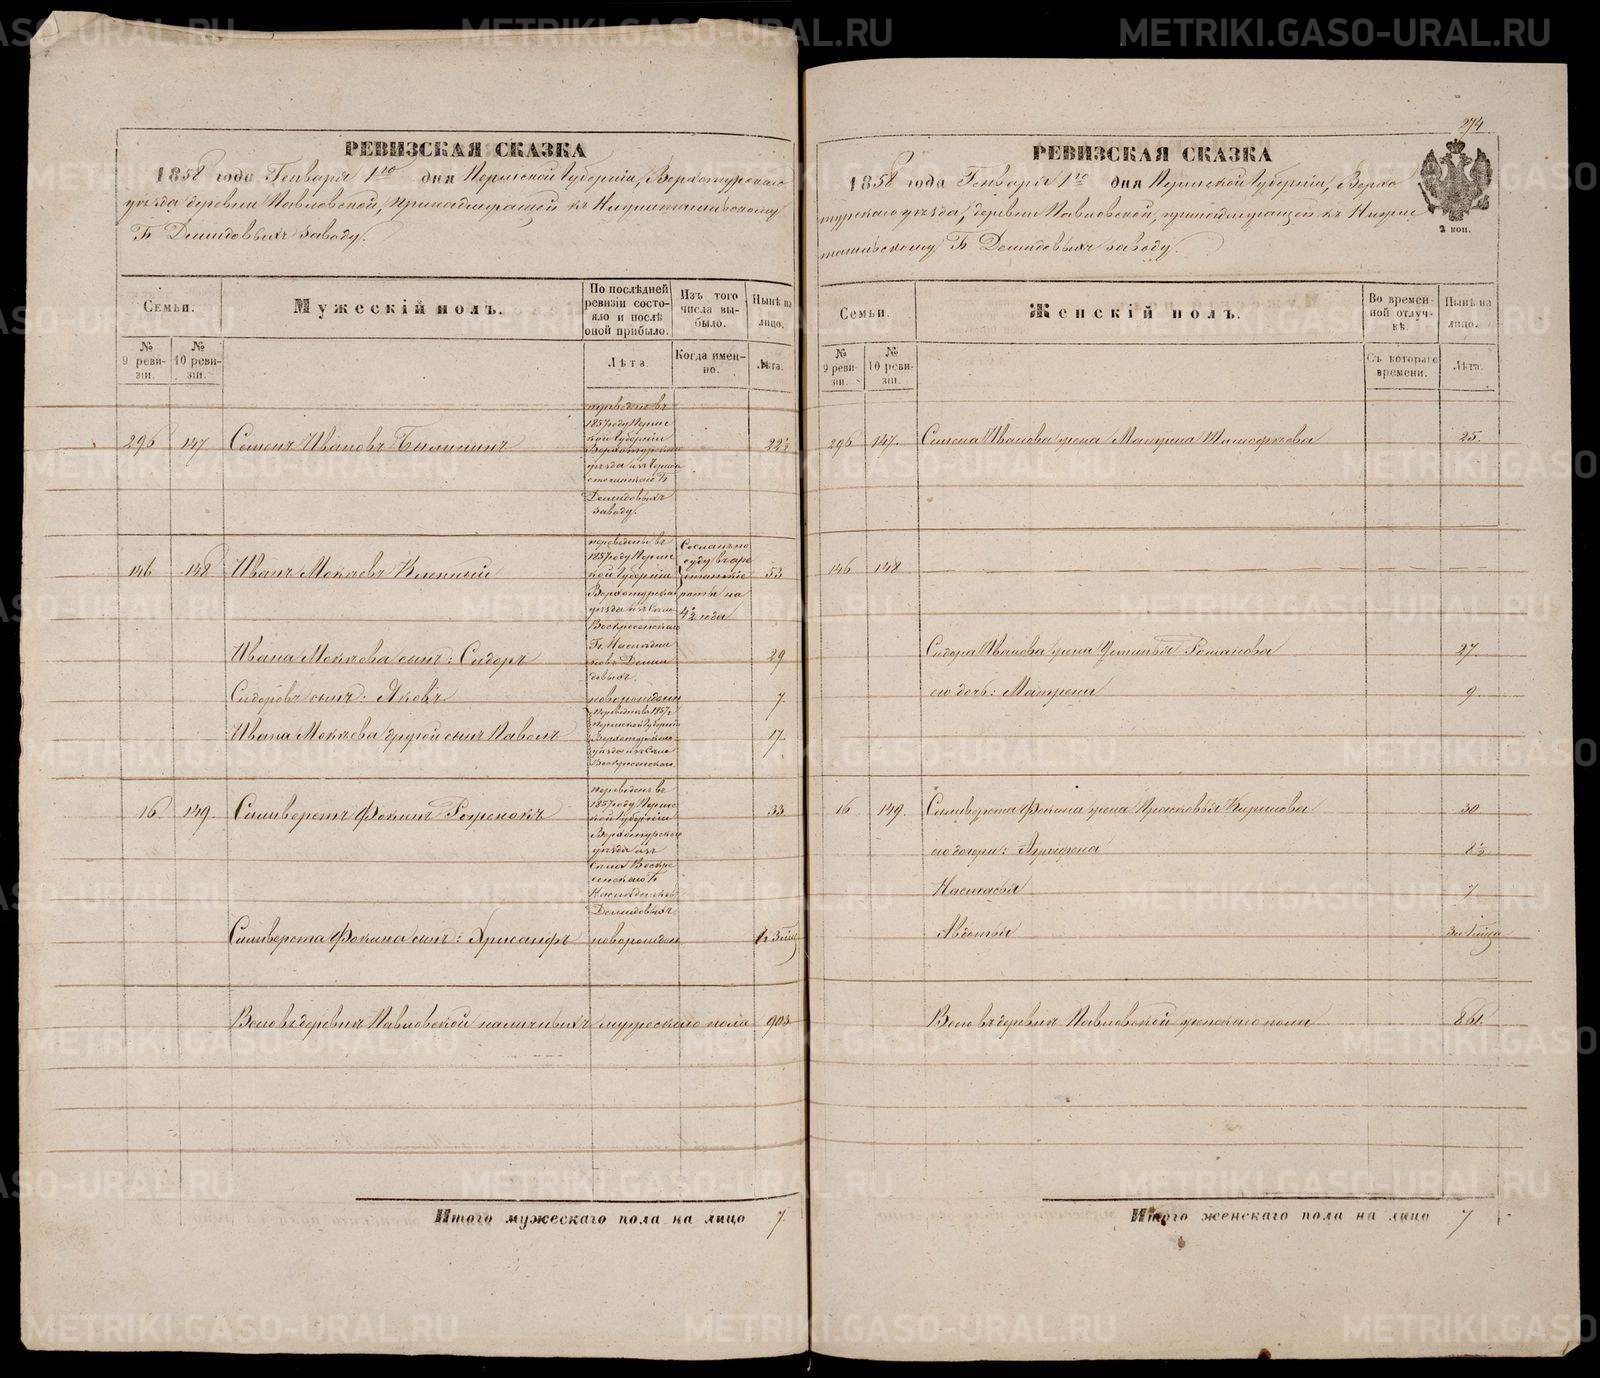 РЕВИЗСКАЯ СКАЗКА
1858 года Генваря 1го дня Пермской Губерніи, Верхотурскаго
уѣзда деревни Павловской, принадлежащей къ Нижнетагильскому
Гг. Демидовыхъ заводу.
Семьи.
Мужескій полъ.
По послѣдней ревизіи состояло и послѣ оной прибыло.
Изъ того числа выбыло.
Нынѣ на лицо.
№ 9 ревизіи.
№ 10 ревизіи.
Лѣта.
Когда именно.
Лѣта.
296 147 Семенъ Ивановъ 22½
переведенъ въ
1857 году Пермс
кой Губерніи
Верхотурскаго
уѣзда изъ Черно
источинскаго Гг.
Демидовыхъ
заводу.
146 148 Иванъ Мокѣевъ Кленный 53
переведены въ
1857 году Пермс
кой Губерніи
Верхотурскаго
уѣзда изъ Села
Воскресенскаго
Гг. Наслѣдни
ковъ Деми
довыхъ.
Сосланъ по
суду въ аре
стантскіе
роты на
4½ года
Ивана Мокѣева сынъ: Сидоръ 29
Сидоровъ сынъ: Яковъ новорожденъ 7.
Ивана Мокѣева другой сынъ Павелъ 17.
переведенъ въ 1857 г.
Пермской Губерніи
Верхотурскаго
уѣзда изъ Села
Воскресенскаго.
16 149. Силиверстъ Фокинъ 33
переведенъ въ
1857 году Пермс
кой Губерніи
Верхотурскаго
уѣзда изъ
Села Воскре
сенскаго Гг.
Наслѣдниковъ
Демидовыхъ
Силиверста Фокина сынъ: Хрисанфъ новорожден
Всего въ деревни Павловской наличныхъ мужескаго пола 903
Итого мужескаго пола на лицо 7.
274
РЕВИЗСКАЯ СКАЗКА
1858 года Генваря 1го дня Пермской Губерніи, Верхо
турскаго уѣзда, деревни Павловской, принадлежащей къ Нижне
тагильскому Гг. Демидовыхъ заводу.
2 коп.
Семьи.
Женскій полъ.
Во временной отлучкѣ.
Нынѣ на лицо.
№ 9 ревизіи.
№ 10 ревизіи.
Съ котораго времени.
Лѣта.
296 147. Семена Иванова жена Матрена Тимофѣева 25.
146 148
Сидора Иванова жена Устинья Романова 27.
его дочь: Матрена 9.
16 149. Силиверста Фокина жена Прасковья Кирилова 30
его дочери: Аграфена 8½
Настасья 7
Авдотья
Всего въ деревни Павловской женскаго пола 861.
Итого женскаго пола на лицо 7
METRIKI.GASO-URAL.RU